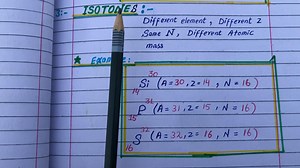 3:- ISOTONES :-
Different element, Different Z
Same N, Different Atomic
mass
★ Example:
30
Si (A=30, Z=14, N=16)
14
31
P (A=31, Z=15, N=16)
15
32
S (A=32, Z=16, N=16)
16